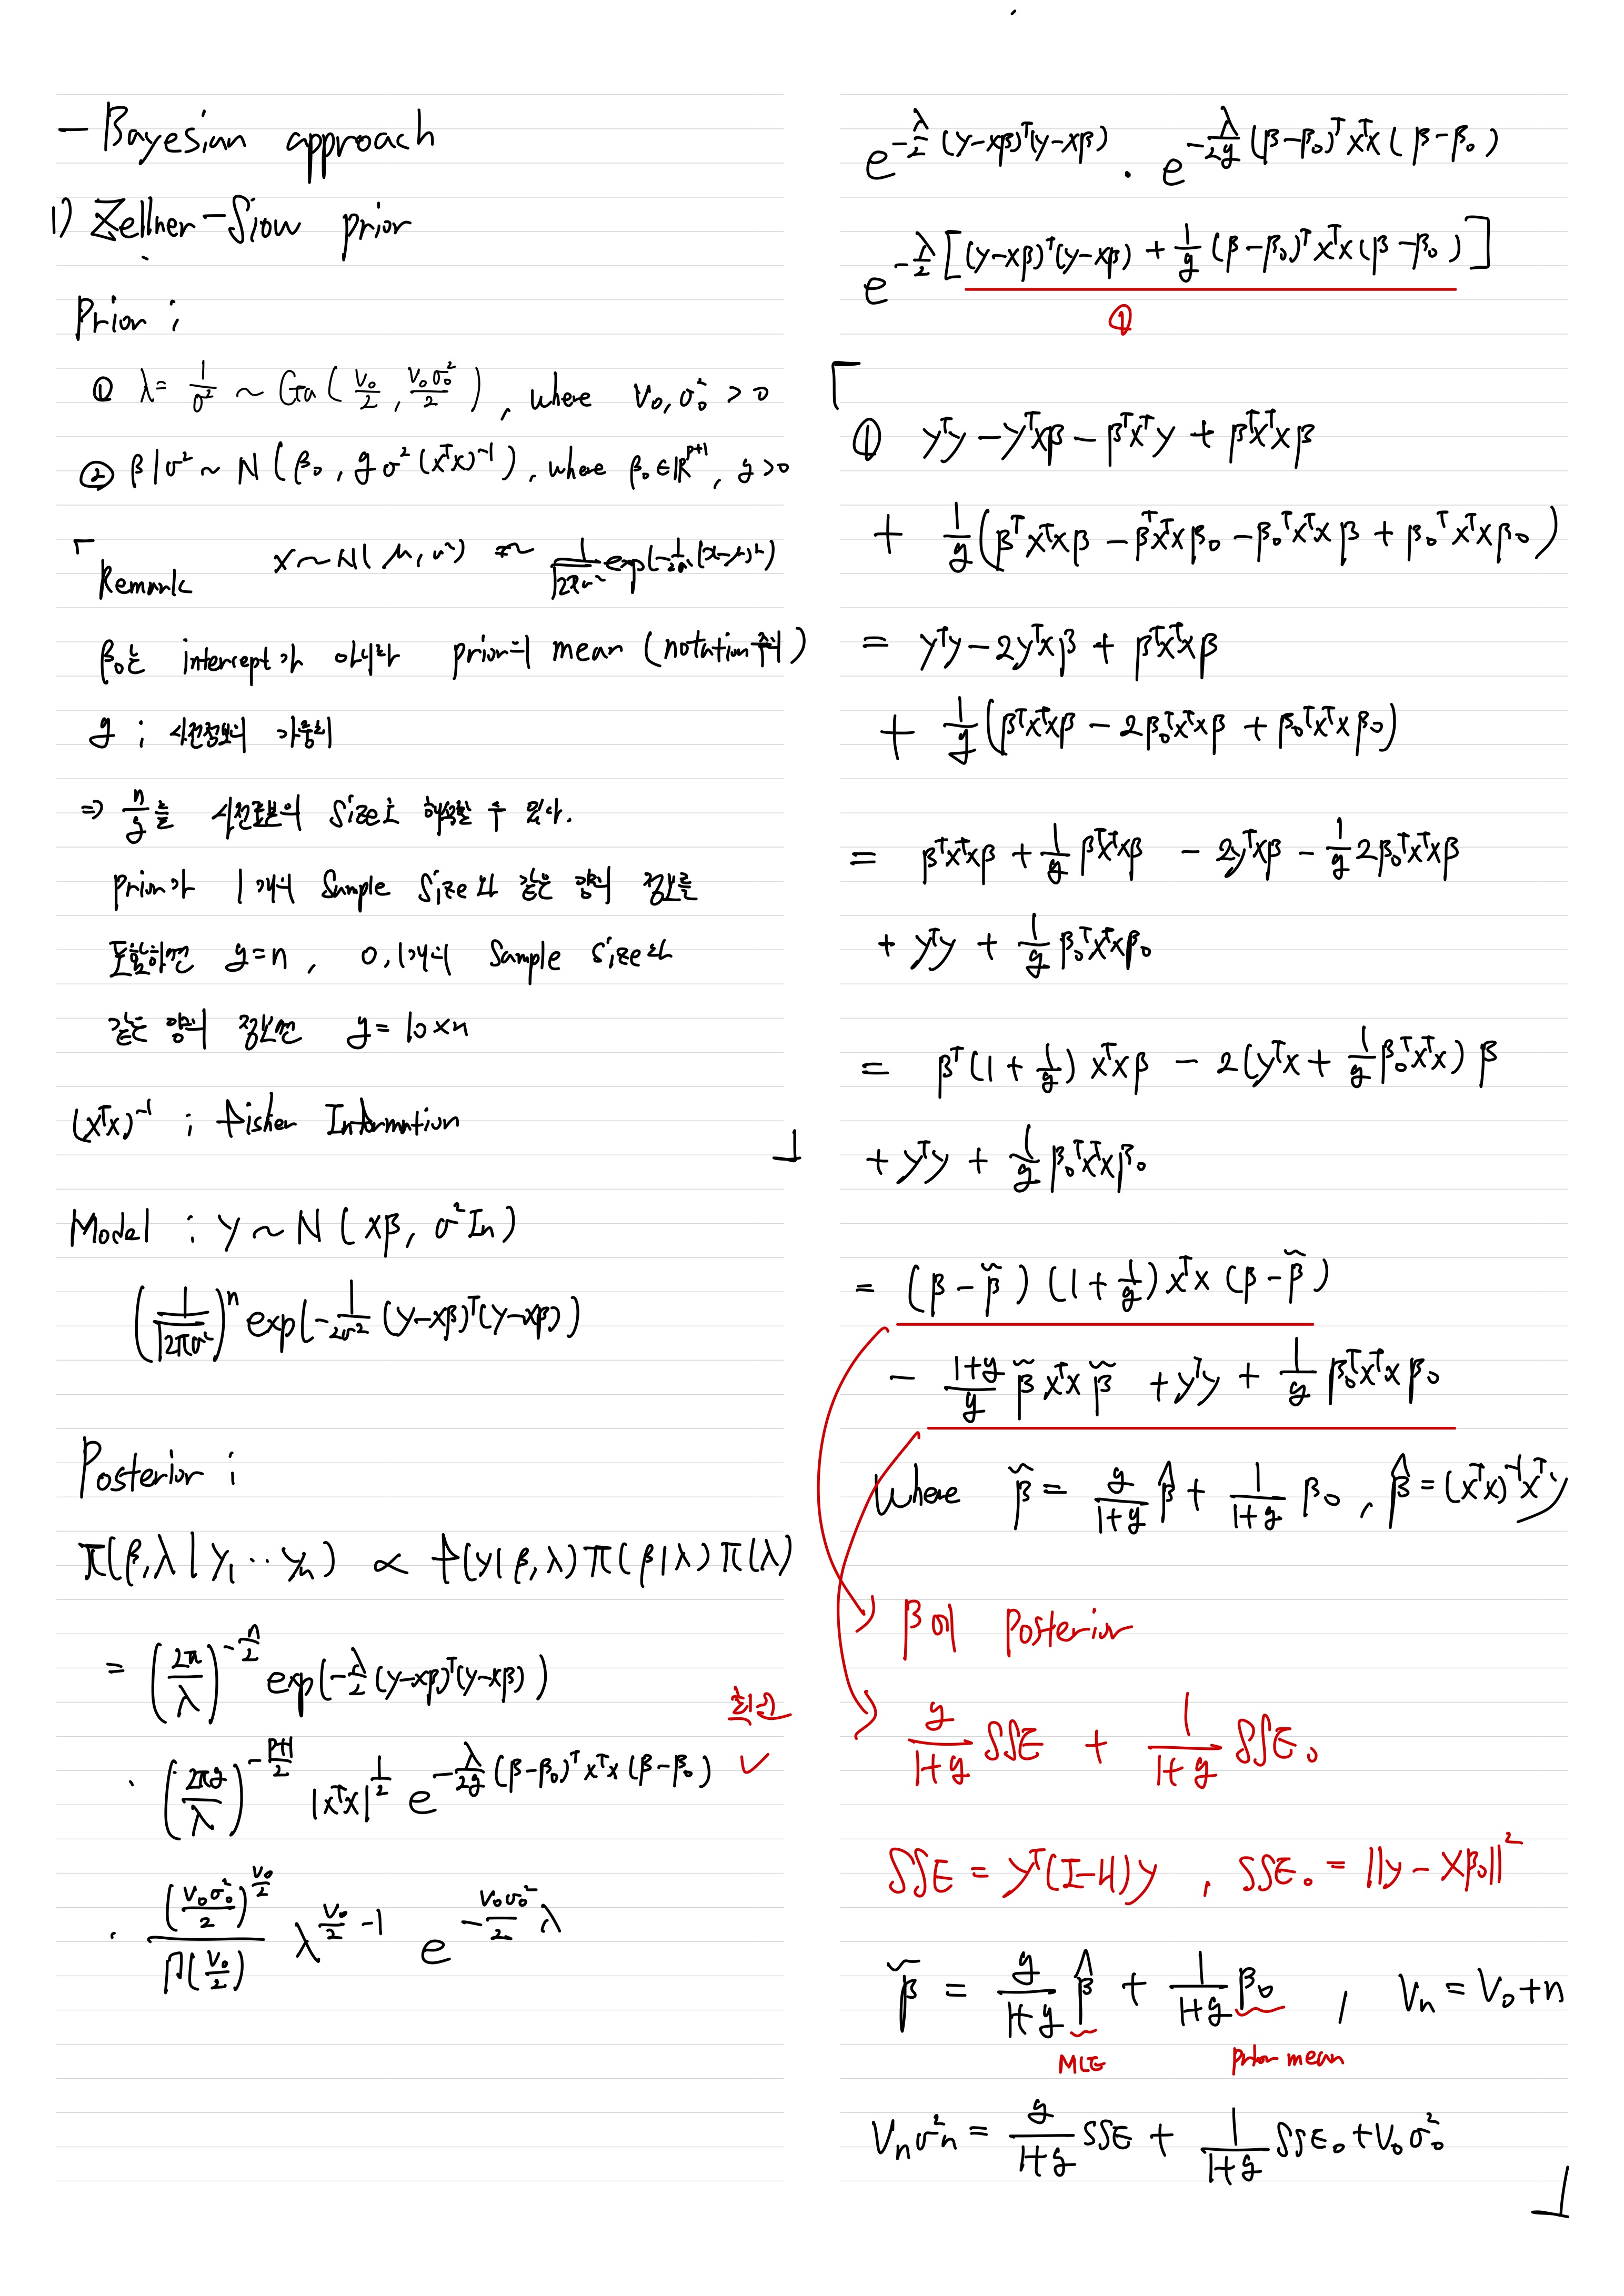 - Bayesian approach
1) Zellner-Siow prior
Prior ;
① λ = 1/σ² ~ Ga( ν₀/2 , ν₀σ₀²/2 ) , where ν₀, σ₀² > 0
② β|σ² ~ N( β₀ , gσ²(XᵀX)⁻¹ ) , where β₀∈ℝᵖ⁺¹, g>0
Remark x~N(μ,σ²) 1/√(2πσ²) exp(-1/2σ² (x-μ)²)
β₀는 intercept가 아니라 prior의 mean (notation 주의)
g ; 사전정보의 가중치
⇒ n/g를 사전표본의 Size로 해석할 수 있다.
prior가 1개의 Sample Size와 같은 양의 정보를
포함하면 g=n , 0.1개의 Sample Size와
같은 양의 정보면 g=10×n
(XᵀX)⁻¹ ; fisher Information
Model ; y ~ N( Xβ, σ²In )
(1/√(2πσ²))ⁿ exp(-1/2σ² (y-Xβ)ᵀ(y-Xβ))
Posterior ;
π(β,λ|y₁⋯yn) ∝ f(y|β,λ)π(β|λ)π(λ)
= (2π/λ)^(-n/2) exp(-λ/2 (y-Xβ)ᵀ(y-Xβ))
· (2πg/λ)^(-(p+1)/2) |XᵀX|^(1/2) e^(-λ/2g (β-β₀)ᵀXᵀX(β-β₀)) 확인 ✓
· (ν₀σ₀²/2)^(ν₀/2) / Γ(ν₀/2) λ^(ν₀/2 -1) e^(-ν₀σ₀²/2 λ)
e^(-λ/2 (y-Xβ)ᵀ(y-Xβ)) · e^(-λ/2g (β-β₀)ᵀXᵀX(β-β₀))
e^(-λ/2 [(y-Xβ)ᵀ(y-Xβ) + 1/g (β-β₀)ᵀXᵀX(β-β₀)])
①
① yᵀy - yᵀXβ - βᵀXᵀy + βᵀXᵀXβ
+ 1/g (βᵀXᵀXβ - βᵀXᵀXβ₀ - β₀ᵀXᵀXβ + β₀ᵀXᵀXβ₀)
= yᵀy - 2yᵀXβ + βᵀXᵀXβ
+ 1/g (βᵀXᵀXβ - 2β₀ᵀXᵀXβ + β₀ᵀXᵀXβ₀)
= βᵀXᵀXβ + 1/g βᵀXᵀXβ - 2yᵀXβ - 1/g 2β₀ᵀXᵀXβ
+ yᵀy + 1/g β₀ᵀXᵀXβ₀
= βᵀ(1+1/g) XᵀXβ - 2(yᵀX + 1/g β₀ᵀXᵀX) β
+ yᵀy + 1/g β₀ᵀXᵀXβ₀
= (β-β̃) (1+1/g) XᵀX (β-β̃)
- (1+g)/g β̃ XᵀX β̃ + yᵀy + 1/g β₀ᵀXᵀXβ₀
Where β̃ = g/(1+g) β̂ + 1/(1+g) β₀ , β̂ = (XᵀX)⁻¹Xᵀy
β의 Posterior
g/(1+g) SSE + 1/(1+g) SSE₀
SSE = yᵀ(I-H)y , SSE₀ = ||y - Xβ₀||²
β̃ = g/(1+g) β̂ + 1/(1+g) β₀ , νn = ν₀+n
MLE prior mean
νnσn² = g/(1+g) SSE + 1/(1+g) SSE₀ + ν₀σ₀²